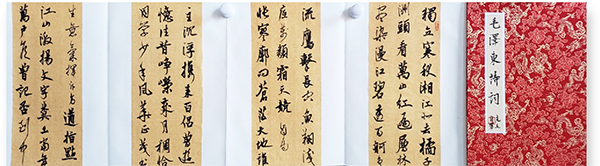 毛澤東詩詞
獨立寒秋湘江北去橘
洲頭看萬山紅遍層林
盡染漫江碧透百舸爭
流鷹擊長空魚翔淺
底萬類霜天競自由
悵寥廓問蒼茫大地誰
主沉浮攜來百侶曾遊
憶往昔崢嶸歲月稠恰
同學少年風華正茂書
生意氣揮斥方遒指點
江山激揚文字糞土當年
萬戶侯曾記否到中